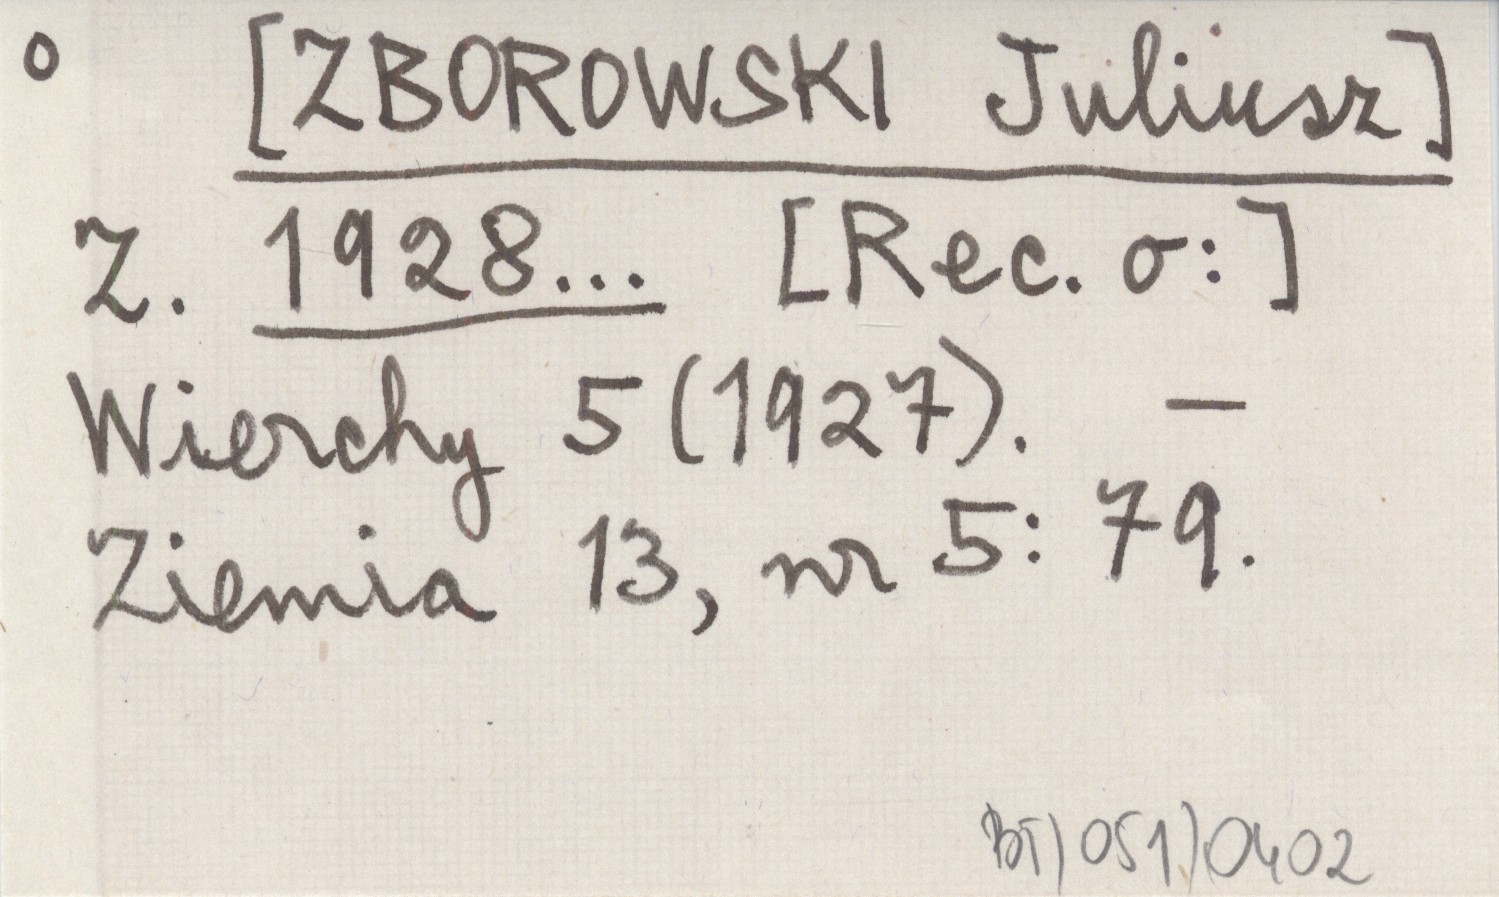 o [ZBOROWSKI Juliusz]
Z. 1928... [Rec. o:]
Wierchy 5 (1927). —
Ziemia 13, nr 5: 79.
BT/051/0402